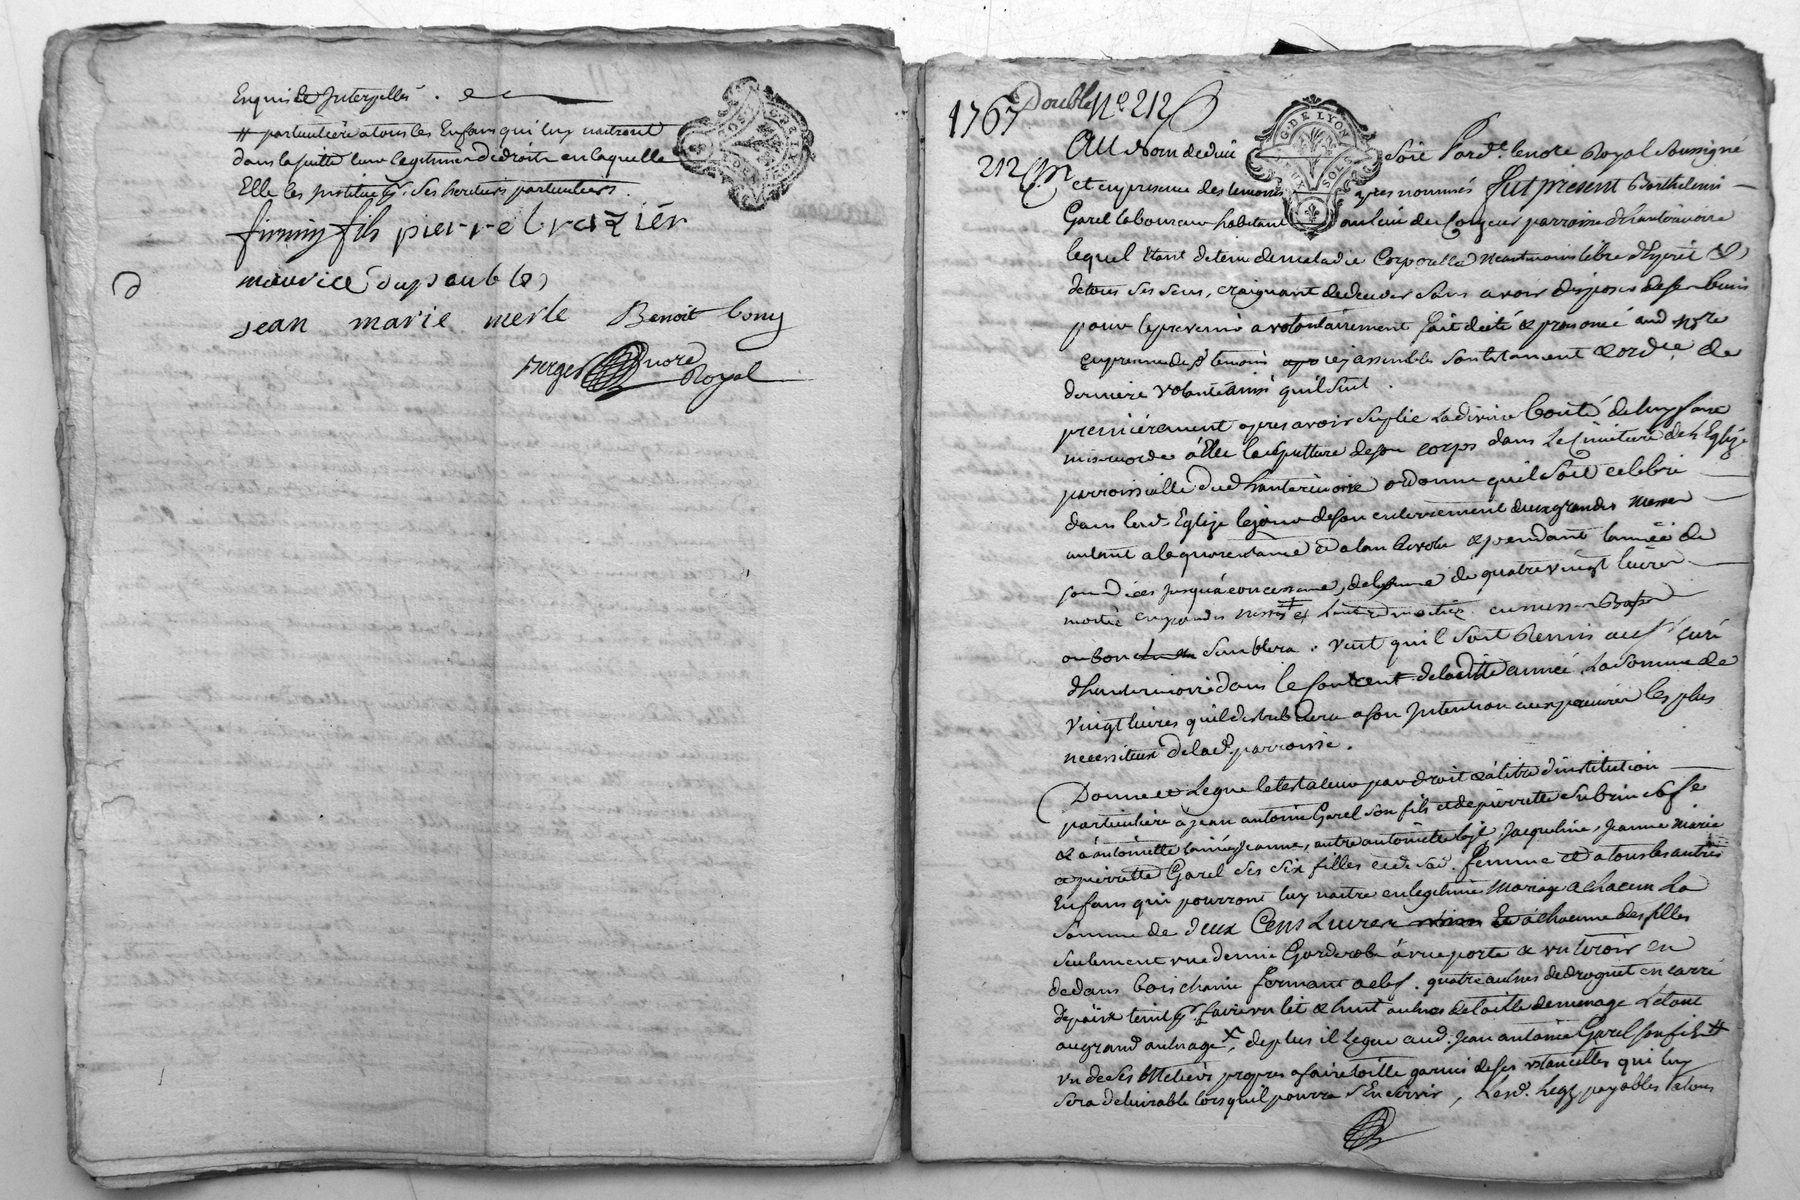 Enquis et Interpellés .
# particuliere a tous les Enfans qui luy naitront
dans la suitte leur legitime de droits en laquelle
Elle les Institue pr. ses heritiers particuliers .
firminy fils pierre brazier
maurice dupouble
jean marie merle Benoit bony
Berger nore
Royal
1767 Double No 212
212
G. DE LYON
Au Nom de dieu soit Pard. le nore Royal soussigné
et en presence des temoins apres nommés fut present Barthelemi
Garel laboureur habitant au lieu de parroisse d'hauterivoire
lequel Etant detenu de maladie Corporelle neantmoins libre d'Esprit &
de tous ses sens, craignant de deceder sans avoir disposé de ses biens
pour le prevenir a volontairement fait dicté & prononcé aud nore
en presence des ts temoins apres assemblés son testament & ordce de
derniere volonté ainsi qu'il suit .
premierement apres avoir suplié la divine bonté de luy faire
misericorde Elit la sepulture de son corps dans le Cimetiere de L'Eglise
parroissialle dud hauterivoire ordonne qu'il soit celebré
dans lad. Eglise le jour de son enterrement deux grandes messes
autant a la quarantaine & a lan Revolu & pendant l'année de
son deces jusqu'a concurrance de la somme de quatre vingt livres
moitié en grandes messes et l'autre moitié en messes Basses
ou bon semblera . veut qu'il soit Remis au sr curé
d'hauterivoire dans le courant de laditte année la somme de
vingt livres qu'il distribuera a son Intention aux pauvres les plus
necessiteux de lad. parroisse .
Donne et Legue le testateur par droit & a titre d'institution
particuliere a jean antoine Garel son fils et de pierrette Subrin
& a antoinette l'ainée, jeanne, autre antoinette, Jacqueline, jeanne marie
& pierrette Garel ses six filles et de sad. femme et a tous les autres
Enfans qui pourront luy naitre en legitime mariage a chacun la
somme de deux Cens Livres Et a chacune des filles
seulement une demie Garderobe a une porte & un tiroir en
dedans bois chaine fermant a clef . quatre aulnes de droguet en carré
de paix teint pr. faire un lit & huit aulnes de toille de menage Le tout
au grand aulnage x, de plus il Legue aud. jean antoine Garel son fils #
un de ses Metiers propres a faire toille garni de ses utancilles qui luy
sera delivrable lorsqu'il pourra s'En servir , Lesd. Legs payables a tous